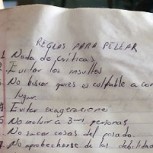 REGLAS PARA PELEAR
1. Nada de críticas
2. Evitar los insultos
3. No buscar quien es culpable a con
lugar.
4. Evitar exageraciones
5. No incluir a 3ª personas
No sacar cosas del pasado.
No aprovecharse de las debilidad